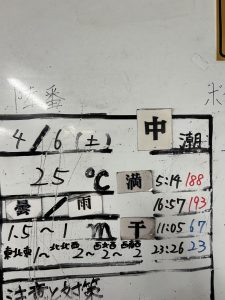 陸番
ボ
4/6(土) 中潮
25℃ 満 5:14 188
曇/雨 16:57 193
1.5～1m 干 11:05 67
東北東1～北北西2～西北西2～西南西2 23:26 23
注意と対策